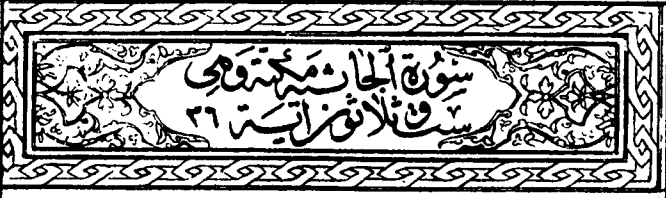 سورة الجاثية مكية وهي
ست وثلاثون آية ٣٦